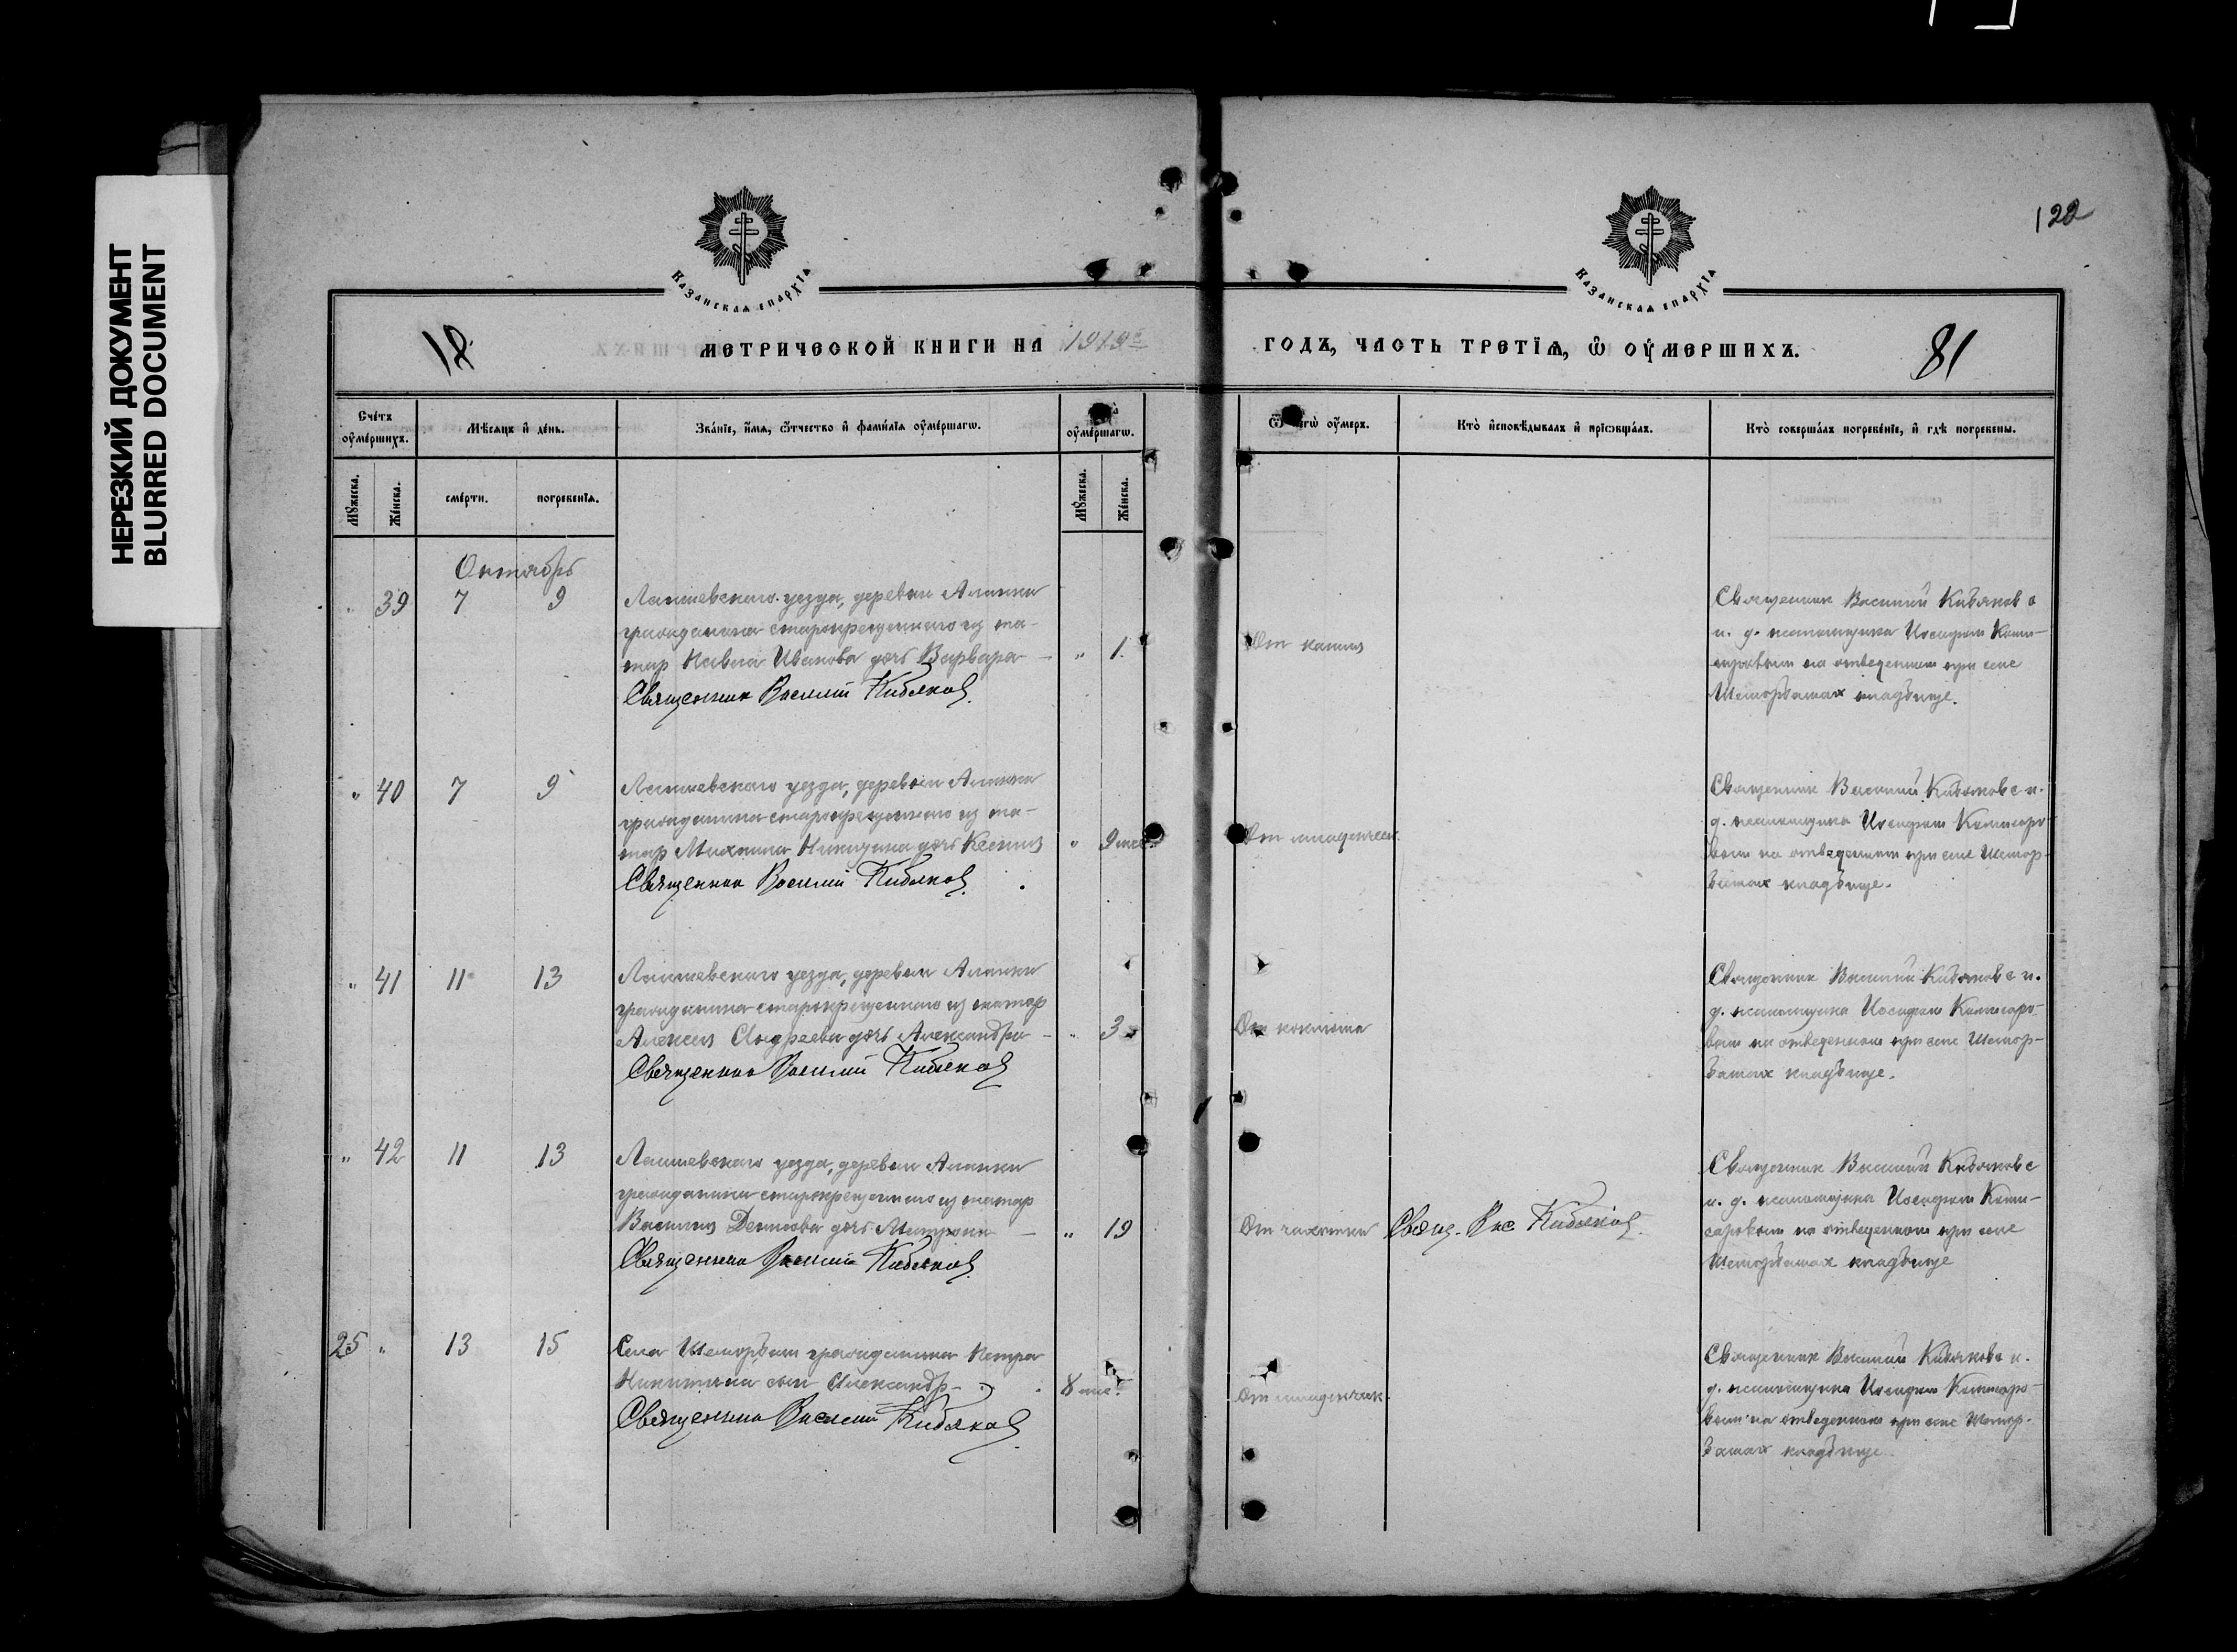 НЕРЕЗКИЙ ДОКУМЕНТ
BLURRED DOCUMENT
122
КАЗАНСКАѦ ЕПАРХІѦ
КАЗАНСКАѦ ЕПАРХІѦ
18.
МЕТРИЧЕСКОЙ КНИГИ НА 1919й
ГОДЪ, ЧАСТЬ ТРЕТІѦ, Ѽ ОУМЕРШИХЪ.
81
Сче́тъ оумершихъ.
Мѣсѧцъ и день.
Званіе, имѧ, ѿчество и фамиліѧ оумершагѡ.
оумершагѡ.
оумеръ.
Кто исповѣдывалъ и пріѡбщалъ.
Кто совершалъ погребеніе, и гдѣ погребены.
Мужеска.
Женска.
смерти.
погребеніѧ.
Мужеска.
Женска.
Октябрь
" 39 7 9
Лаишевскаго уезда, деревни Аланки
гражданина старокрещеннаго из та-
тар Павла Иванова дочь Варвара — " 1.
Священник Василий Кибяков.
От кашля
Священник Василий Кибяков с
и. д. псаломщика Иосифом Комис-
саровым на отведенном при селе
Шеморбашах кладбище.
" 40 7 9
Лаишевскаго уезда, деревни Аланки
гражданина старокрещеннаго из та-
тар Михаила Никитина дочь Ксения " 9 мес.
Священник Василий Кибяков.
От младенческ.
Священник Василий Кибяков с и.
д. псаломщика Иосифом Комиссаро-
вым на отведенном при селе Шемор-
башах кладбище.
" 41 11 13
Лаишевскаго уезда, деревни Аланки
гражданина старокрещеннаго из татар
Алексея Андреева дочь Александра — " 3
Священник Василий Кибяков
От коклюша
Священник Василий Кибяков с и.
д. псаломщика Иосифом Комиссаро-
вым на отведенном при селе Шемор-
башах кладбище.
" 42 11 13
Лаишевскаго уезда, деревни Аланки
гражданина старокрещеннаго из татар
Василия Денисова дочь Матрона — " 19
Священник Василий Кибяков.
От чахотки
Свящ. Вас Кибяков.
Священник Василий Кибяков с
и. д. псаломщика Иосифом Комис-
саровым на отведенном при селе
Шеморбашах кладбище
25 " 13 15
Села Шеморбаши гражданина Петра
Никитина сын Александр — 8 мес.
Священник Василий Кибяков.
От младенческ.
Священник Василий Кибяков с и.
д. псаломщика Иосифом Комиссаро-
вым на отведенном при селе Шемор-
башах кладбище.